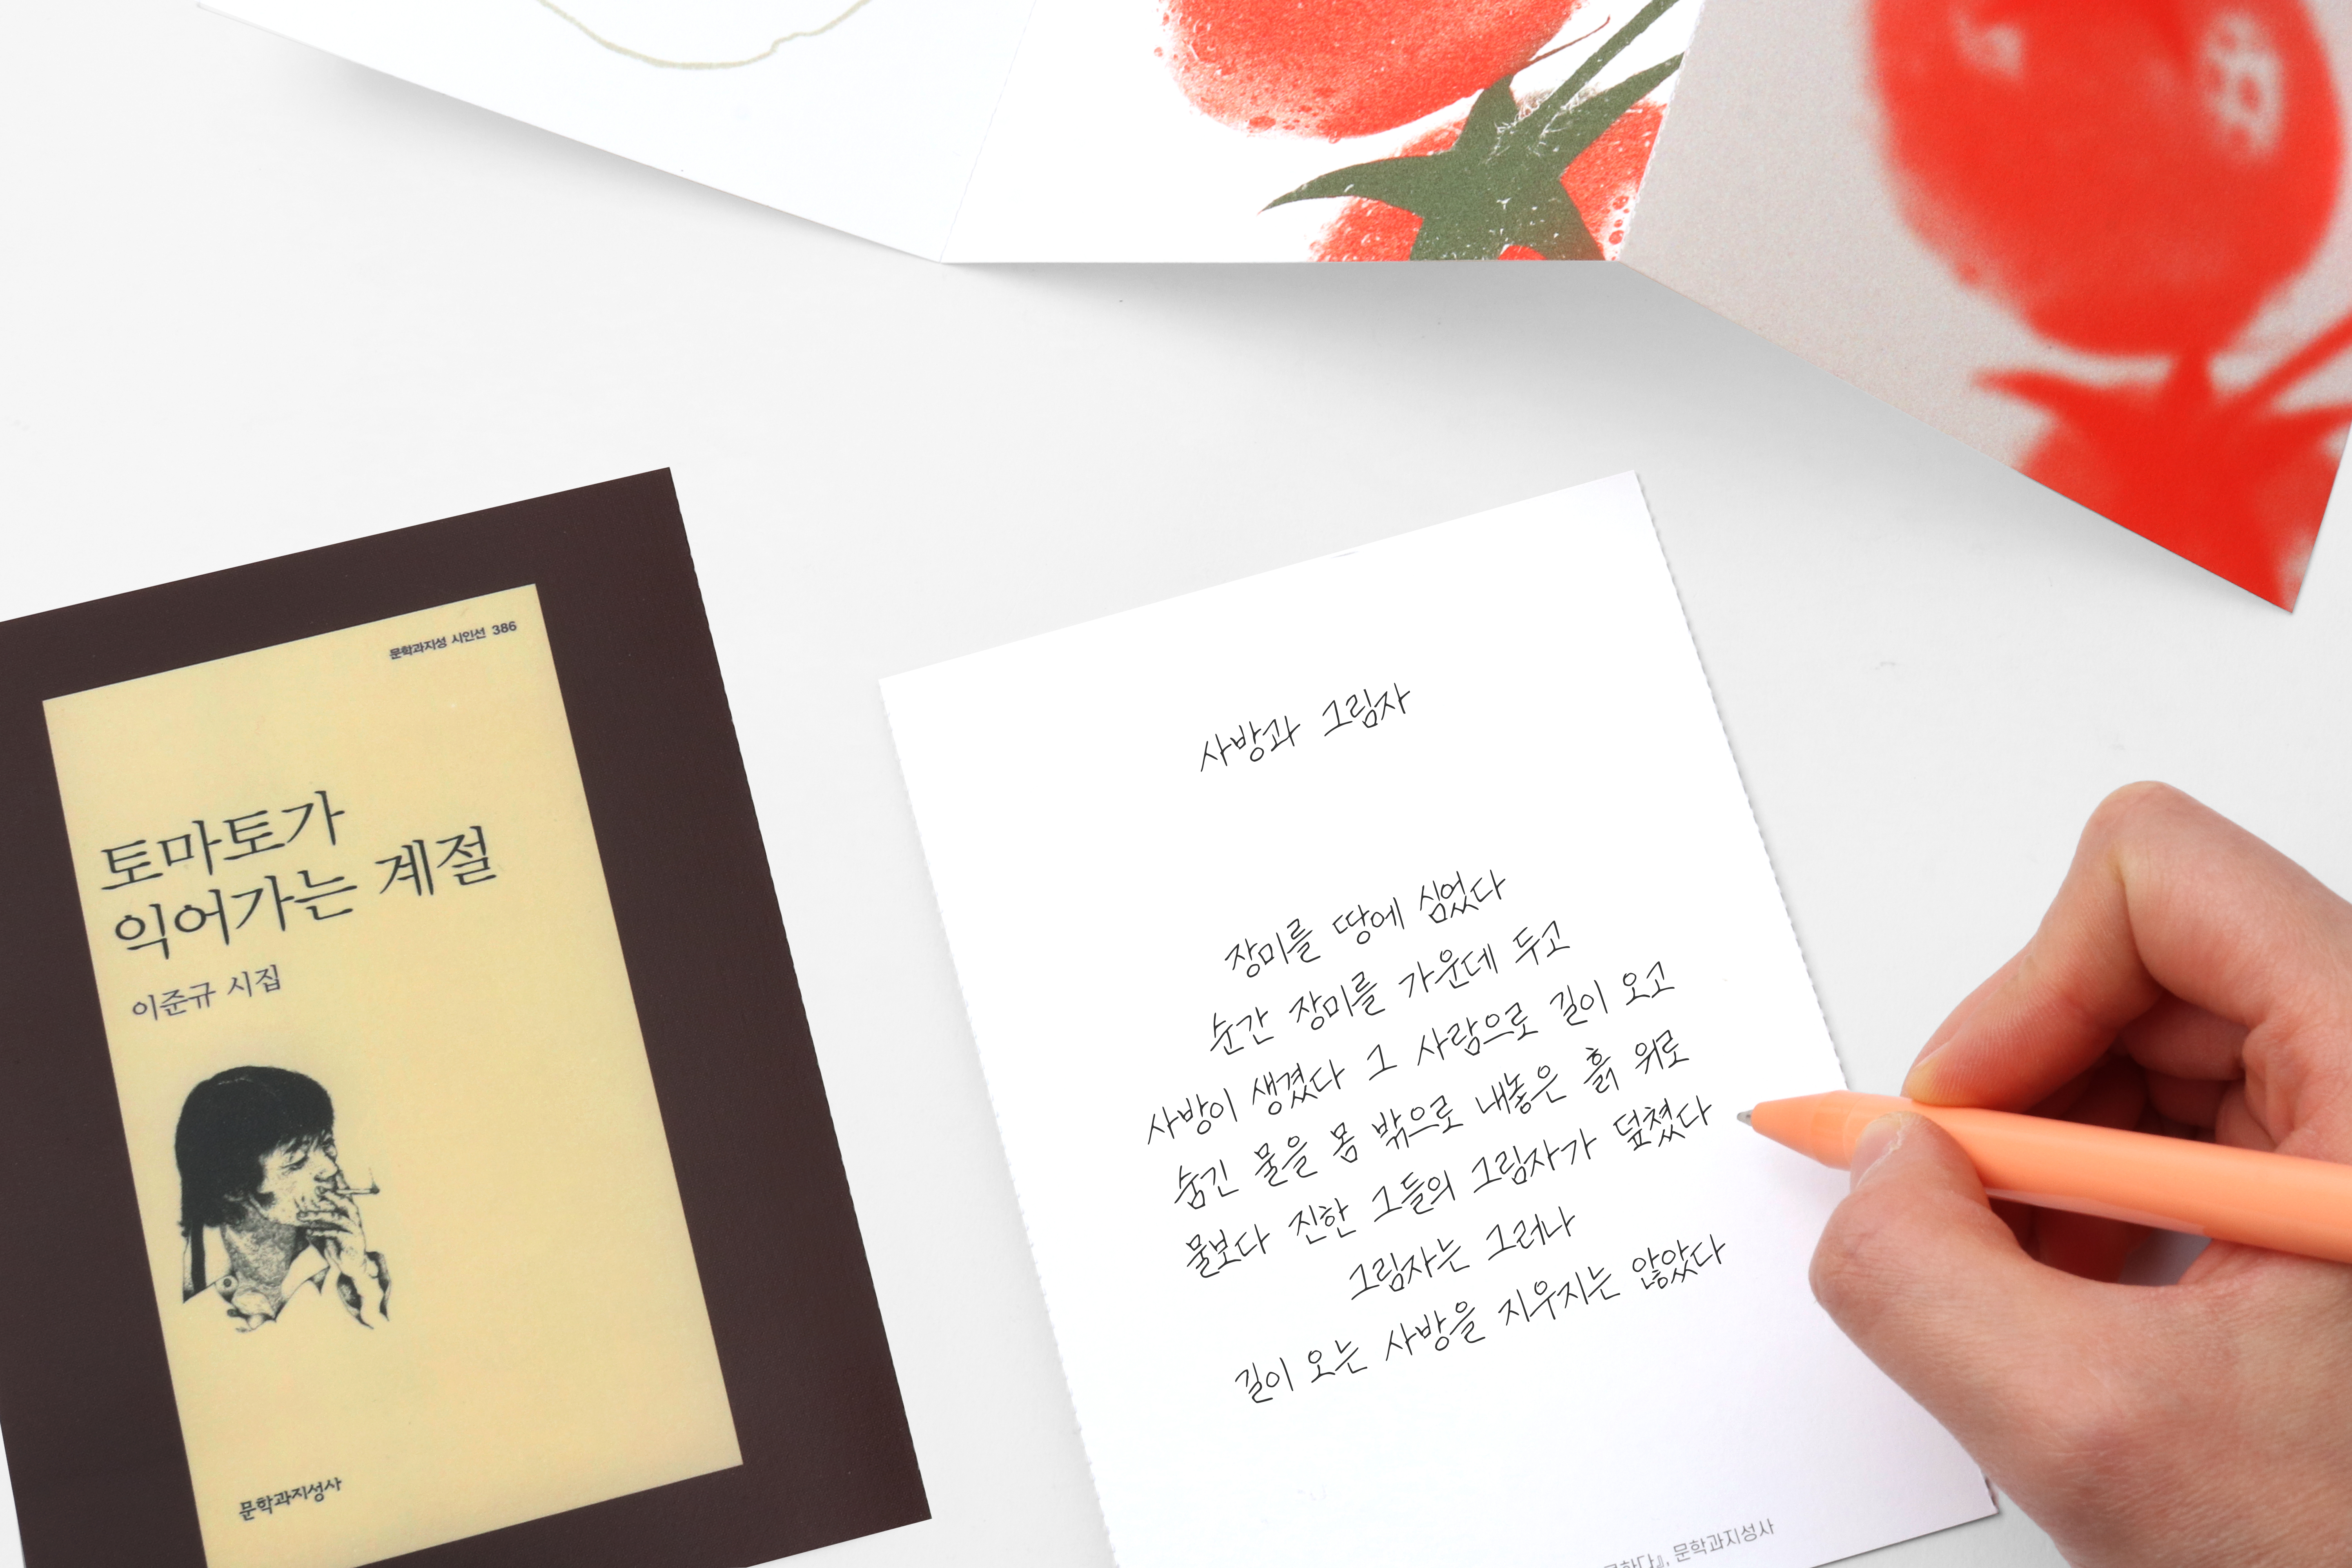 문학과지성 시인선 386
토마토가
익어가는 계절
이준규 시집
문학과지성사
사방과 그림자
장미를 땅에 심었다
순간 장미를 가운데 두고
사방이 생겼다 그 사람으로 길이 오고
숨긴 물을 몸 밖으로 내놓은 흙 위로
물보다 진한 그들의 그림자가 덮쳤다
그림자는 그러나
길이 오는 사방을 지우지는 않았다
문학과지성사